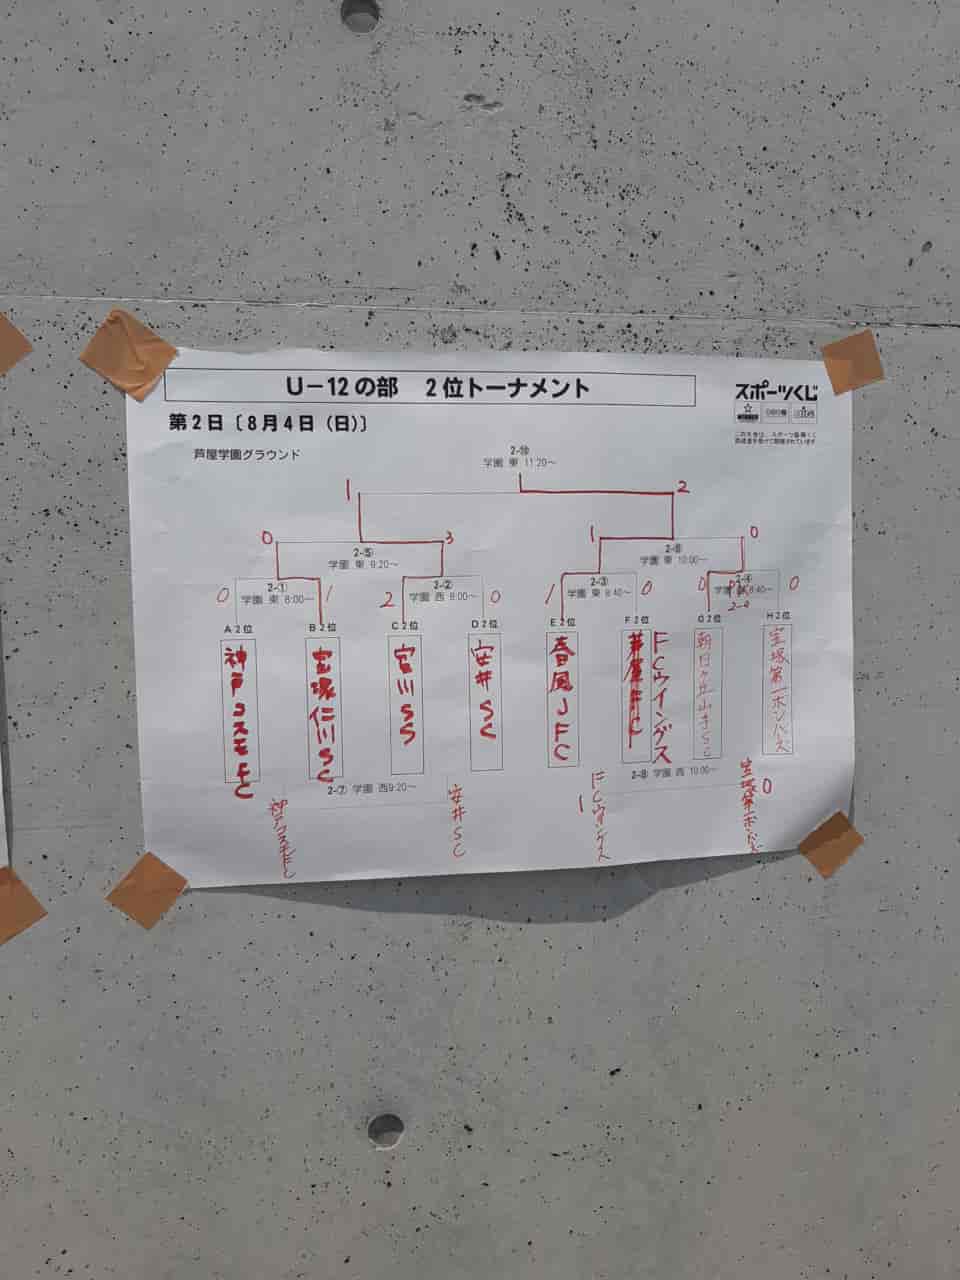 U－12の部　2位トーナメント
スポーツくじ
第2日〔8月4日（日）〕
芦屋学園グラウンド
2-⑩
学園 東 11:20～
1
2
0
3
1
0
2-⑤
学園 東 9:20～
2-⑥
学園 東 10:00～
0
2-①
学園 東 8:00～
1
2
2-②
学園 西 8:00～
0
1
2-③
学園 東 8:40～
0
0
2-④
学園 西 8:40～
PK
2-0
0
A 2位
B 2位
C 2位
D 2位
E 2位
F 2位
G 2位
H 2位
神戸コスモFC
宝塚仁川SC
宮川SS
安井SC
春風JFC
芦屋FC
FCウイングス
朝日ヶ丘山手SC
宝塚第一ボンバーズ
2-⑦ 学園 西9:20～
2-⑧ 学園 西 10:00～
神戸コスモFC
安井SC
1
FCウイングス
宝塚第一ボンバーズ
0